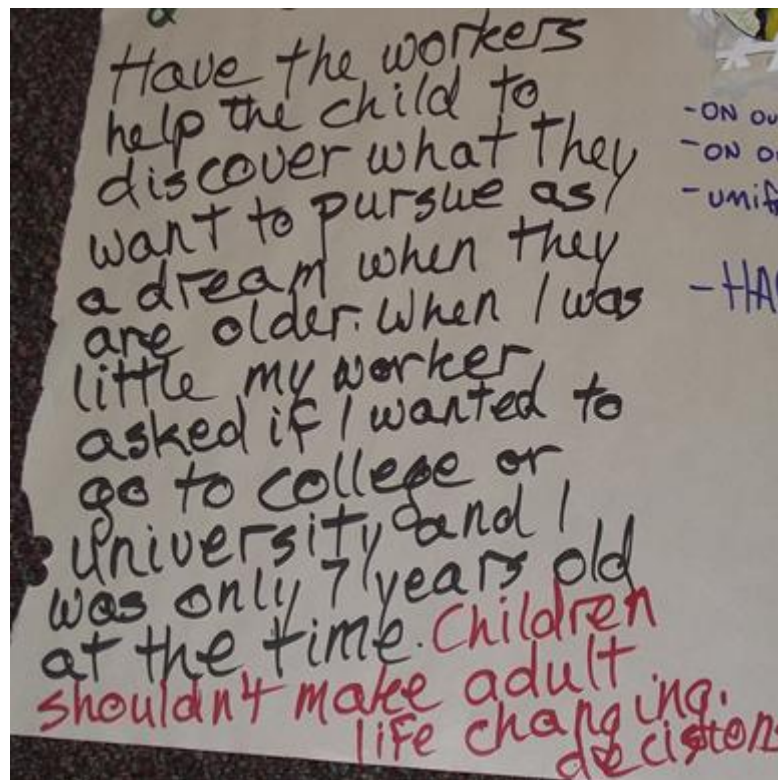 Have the workers
help the child to
discover what they
want to pursue as
a dream when they
are older. When I was
little my worker
asked if I wanted to
go to college or
University and I
was only 7 years old
at the time. Children
shouldn't make adult
life changing.
decision
- ON
- ON
-
-